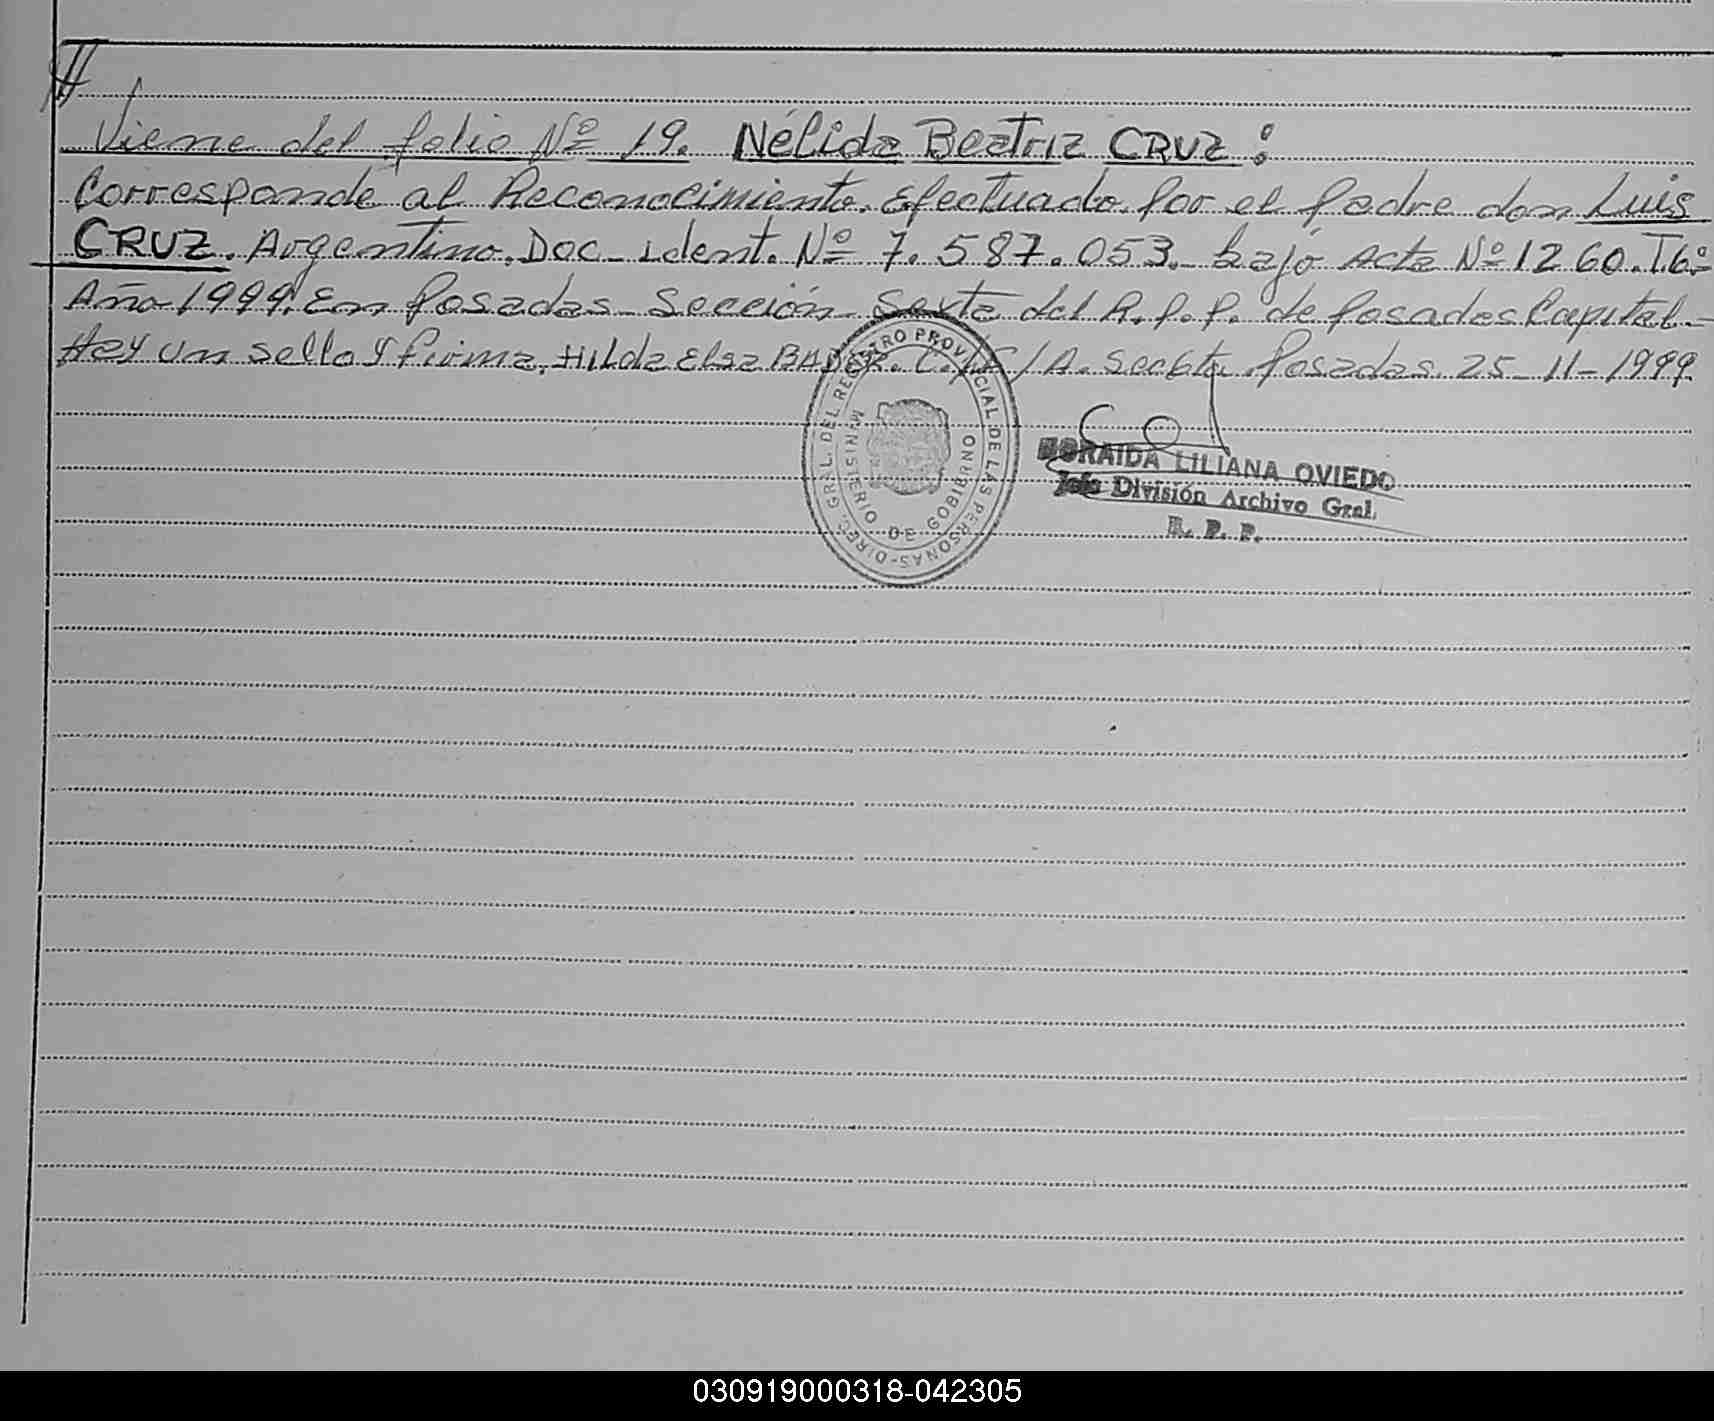 //
Viene del folio Nº 19. Nélida Beatriz CRUZ :
Corresponde al Reconocimiento. Efectuado por el padre don Luis
CRUZ. Argentino. Doc. ident. Nº 7.587.053. bajo Acta Nº 1260. T.6º
Año 1999. En Posadas Sección Sexta del R.P.P. de Posadas Capital.-
Hay un sello y firma. Hilda Elsa . Posadas. 25-11-1999.
DIREC. GRAL. DEL REGISTRO PROVINCIAL DE LAS PERSONAS
MINISTERIO DE GOBIERNO
LILIANA OVIEDO
Jefe División Archivo Gral.
R. P. P.
030919000318-042305